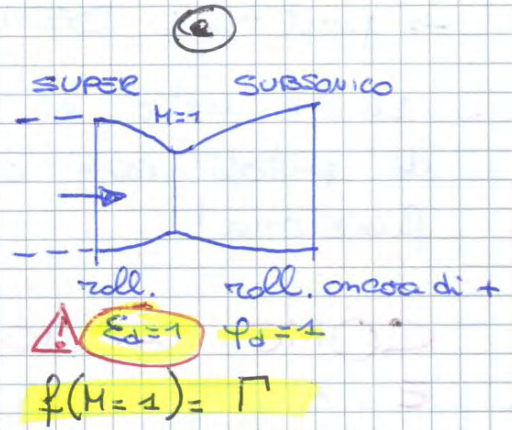 e
SUPER SUBSONICO
M=1
rall. rall. ancora di +
! εd=1 φd=1
f(M=1)= Γ